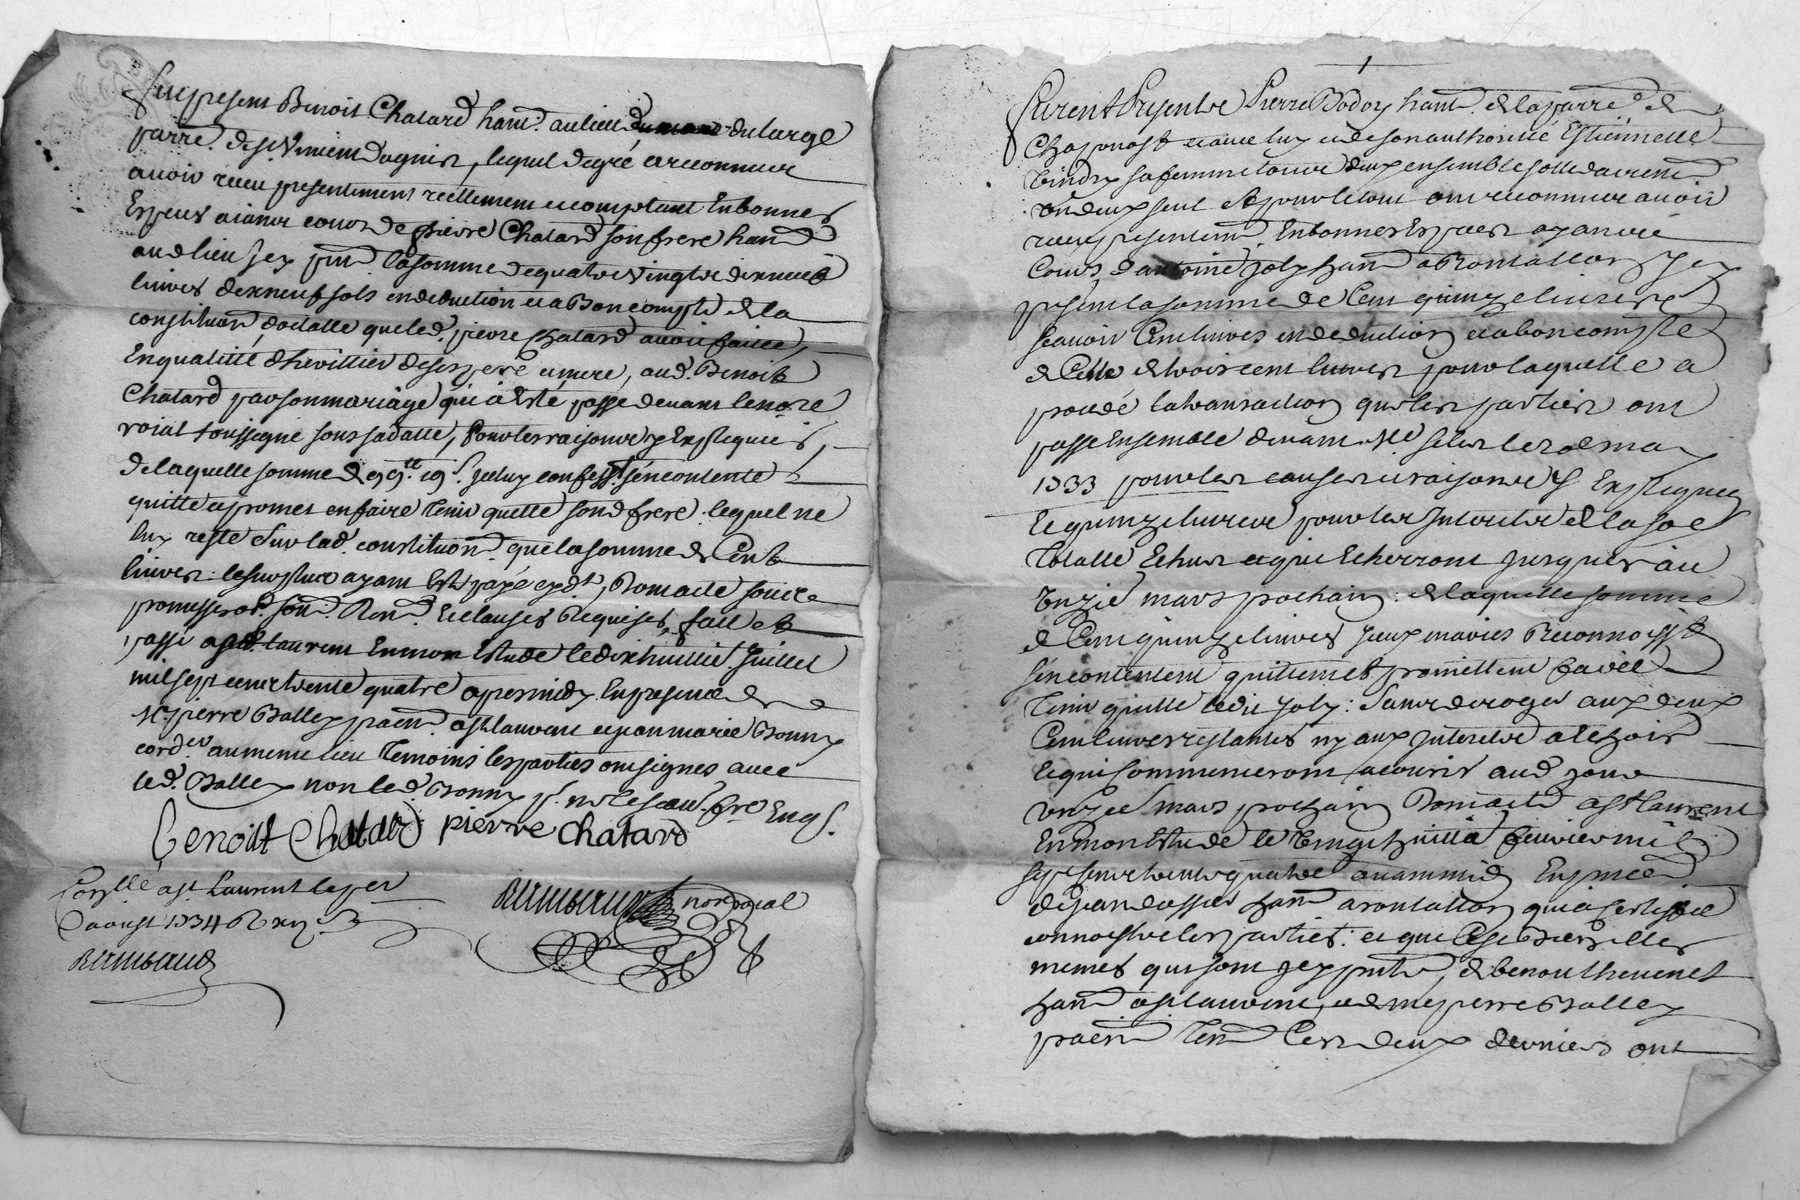 fut present Benoit Chatard han.t au lieu du large
parr.e de St Vincent dagnin, lequel de gré a reconnu
avoir receu presentement reellement et comptant En bonnes
Especes aiance cours de pierre Chatard son frere han.t
aud lieu Jcy p.nt la somme de quatre vingt dixneuf
livres dixneuf sols en deduction et a Bon compte de la
constitution dotalle que led. pierre Chatard avoit faitte,
En qualitté dheritier de ses pere et mere, aud. Benoit
Chatard par son mariage qui a Esté passé devant le no.re
roial soussigné sous sa datte, pour les raisons y Expliquées,
de laquelle somme de 99.tt 19.s Jceluy confess.t sen contente
quitte et promet en faire tenir quitte sond frere lequel ne
luy reste sur lad. constitution que la somme de Cent
livres le surplus ayant Esté payé
promiss. Ren.on et clauses Requises, fait et
passé a St laurent En mon Estude le dix huitie. Juillet
mil sept cent trente quatre apres midy En presence de
Me pierre Balley pacn.t a St laurent et jean marie Bonny
cord.er au meme lieu temoins les parties ont signés avec
led. Balley non led. Bonny p.r ne le scav. de ce Enq.s
Benoist Chatard pierre Chatard
Con.llé a St Laurent le per
daoust 1734 R xij s
not roial
Furent Presents Pierre Bodoy han.t de la parr.e de
Chaponost et avec luy et de son authorité Estiennette
sa femme tous deux ensemble sollidairem.t
un deux seul et pour le tout ont reconnu avoir
receu presentem.t En bonnes Especes ayance
Cours dantoine Joly han.t a Rontallon Jcy
present la somme de Cent quinze livres
scavoir Cent livres en deduction et a bon compte
de Celle de trois cent livres pour laquelle a
procedé la transaction que les parties ont
passé Ensemble devant
1733 pour les causes et raisons y Expliquées
Et quinze livres pour les Interests de la so.e
totalle Echus et qui Echerront jusques au
unzie mars prochain : de laquelle somme
de Cent quinze livres Jceux mariés Reconnoiss.t
sen contentent quittent et promettent faire
tenir quitte ledit Joly : Sans deroger aux deux
Cent livres restantes ny aux Interests a Echoir
Et qui Commenceront a courir aud. jour
unzie mars prochain Dont acte a St laurent
En mon Estude le vingt huitie fevrier mil
sept cent trente quatre avant midy En p.nce
de jean dassier han.t a rontallon qui a certiffié
connoistre les parties : et que Cest Bien Elles
mesmes qui sont Jcy p.ntes, de benoit thevenet
han.t a St laurent, et de me pierre Balley
pacn.t tem. Ces deux derniers ont